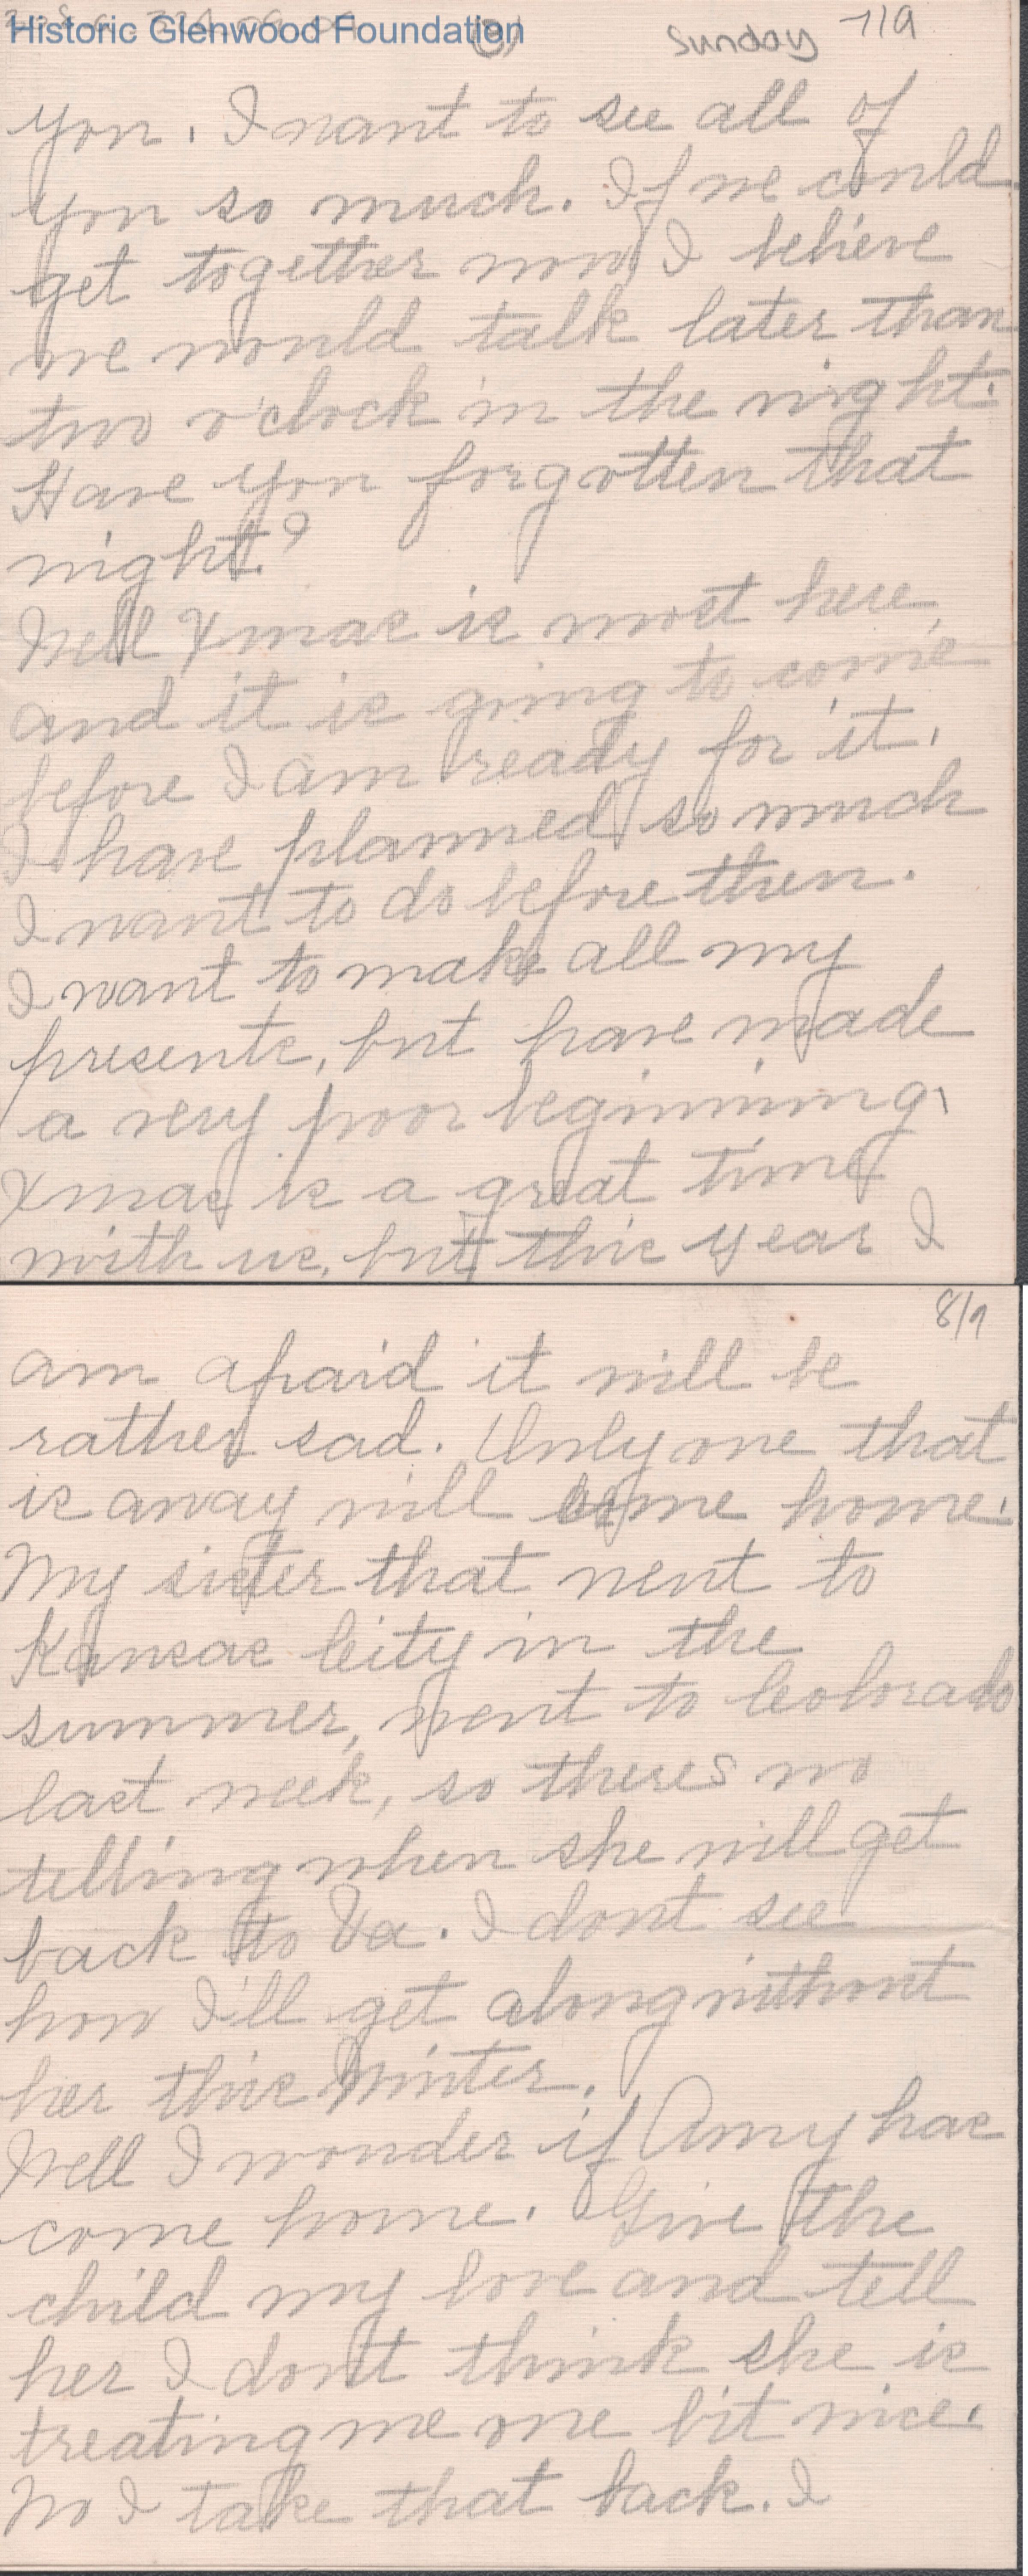 Historic Glenwood Foundation
Sunday 7/9
you. I want to see all of
you so much. If we could
get together now, I believe
we would talk later than
two o'clock in the night.
Have you forgotten that
night?
Well Xmas is most here,
and it is going to come
before I am ready for it.
I have planned so much
I want to do before then.
I want to make all my
presents, but have made
a very poor beginning.
Xmas is a great time
with us, but this year I
8/9
am afraid it will be
rather sad. Only one that
is away will come home.
My sister that went to
Kansas City in the
summer, went to Colorado
last week, so theres no
telling when she will get
back to Va. I dont see
how I'll get along without
her this winter.
Well I wonder if Amy has
come home. Give the
child my love and tell
her I don't think she is
treating me one bit nice.
No I take that back. I